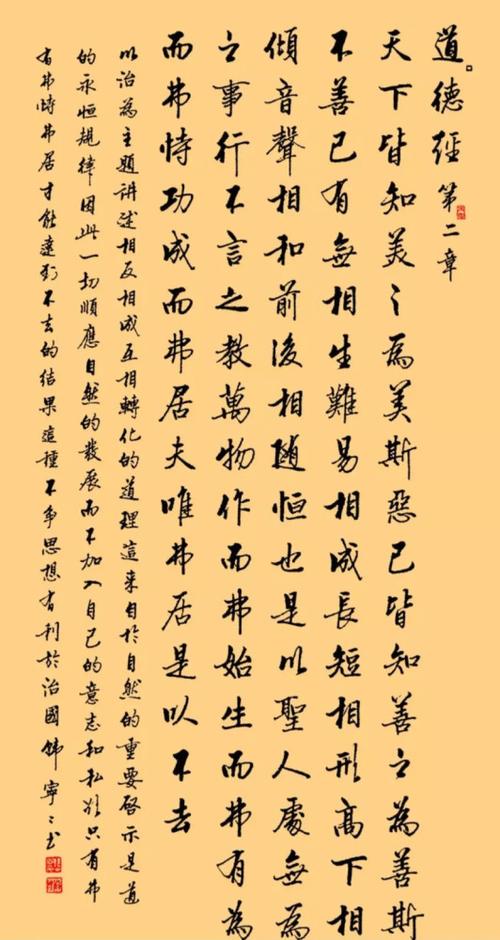 道德經第二章
天下皆知美之為美斯惡已皆知善之為善斯
不善已有無相生難易相成長短相形高下相
傾音聲相和前後相随恒也是以聖人處無為
之事行不言之教萬物作而弗始生而弗有為
而弗恃功成而弗居夫唯弗居是以不去
以治為主題講述相反相成互相轉化的道理這来自於自然的重要啓示是道
的永恒規律因此一切順應自然的發展而不加入自己的意志和私欲只有弗
有弗恃弗居才能達到不去的結果這種不争思想有利於治國韓寧〻书